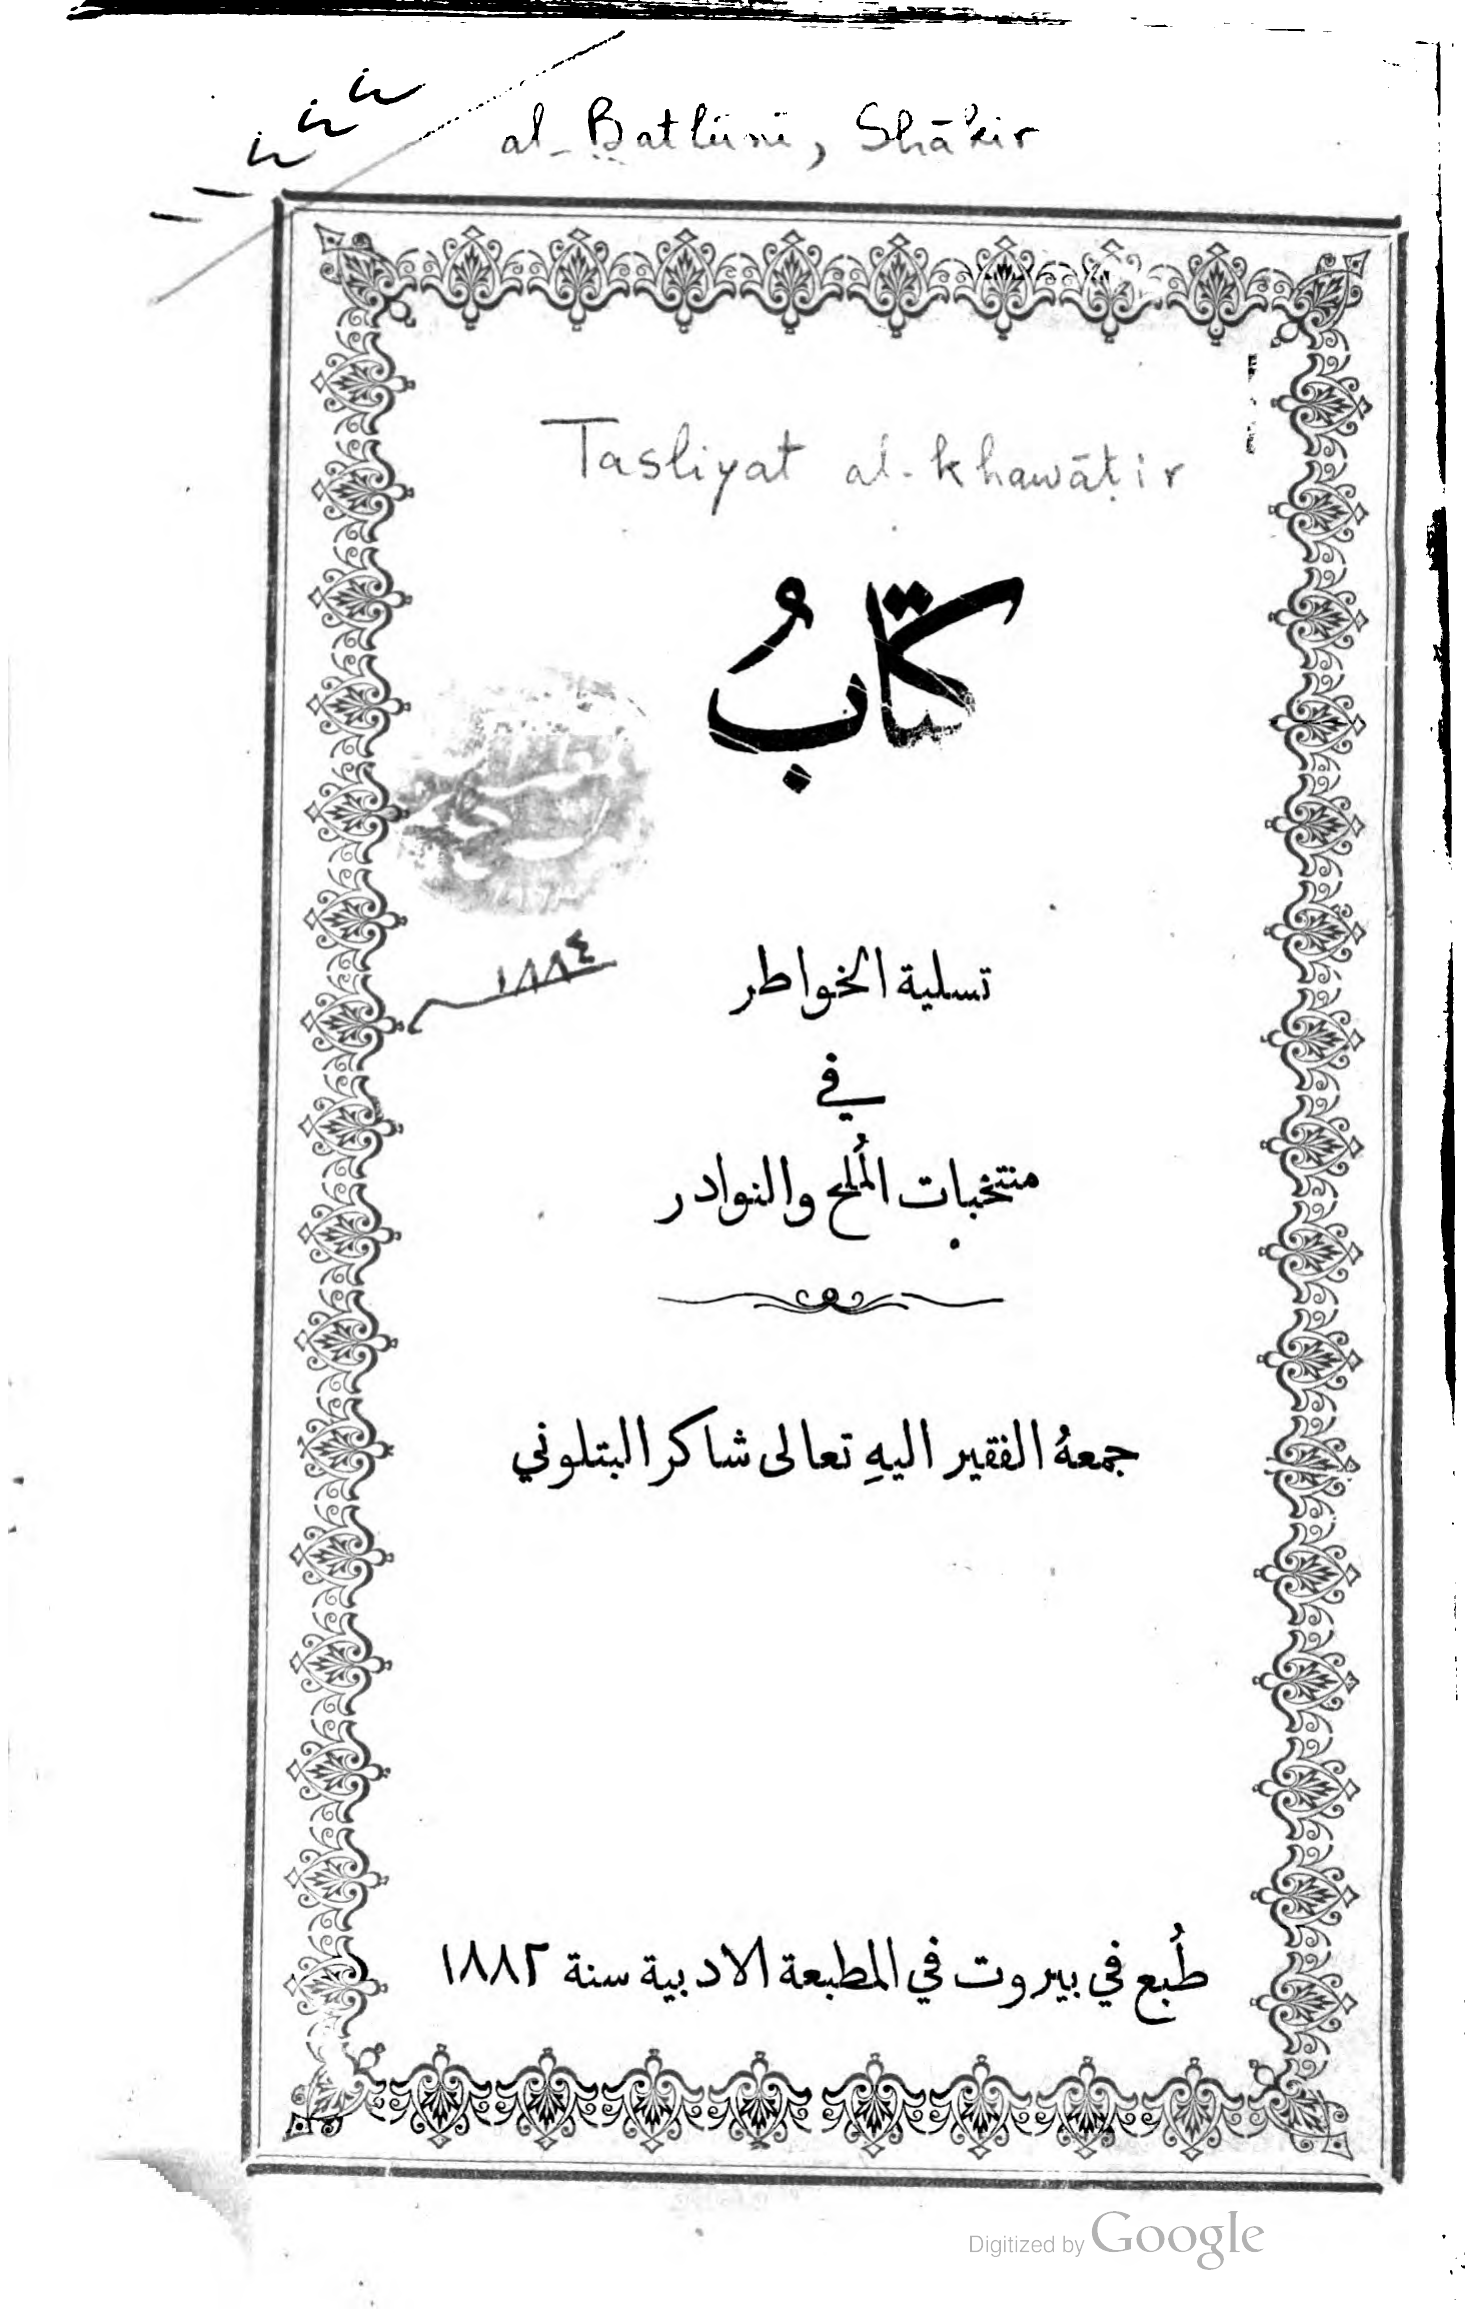 al-Batlūnī, Shākir
Tasliyat al-khawāṭir
كتابُ
١٨٨٤
تسلية الخواطر
في
منتخبات المُلح والنوادر
جمعهُ الفقير اليهِ تعالى شاكر البتلوني
طُبع في بيروت في المطبعة الادبية سنة ١٨٨٢
Digitized by Google